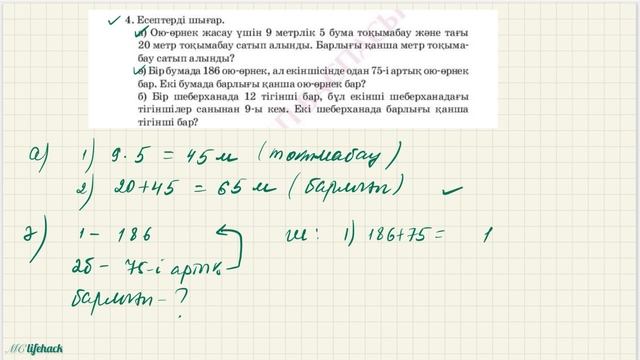 4. Есептерді шығар.
а) Ою-өрнек жасау үшін 9 метрлік 5 бума тоқымабау және тағы
20 метр тоқымабау сатып алынды. Барлығы қанша метр тоқыма-
бау сатып алынды?
ә) Бір бумада 186 ою-өрнек, ал екіншісінде одан 75-і артық ою-өрнек
бар. Екі бумада барлығы қанша ою-өрнек бар?
б) Бір шеберханада 12 тігінші бар, бұл екінші шеберханадағы
тігіншілер санынан 9-ы кем. Екі шеберханада барлығы қанша
тігінші бар?
а) 1) 9 · 5 = 45 м (тоқымабау)
2) 20+45 = 65 м (барлығы)
ә) 1 – 186
ш: 1) 186+75 = 1
2б – 75-і артық
барлығы – ?
MC lifehack